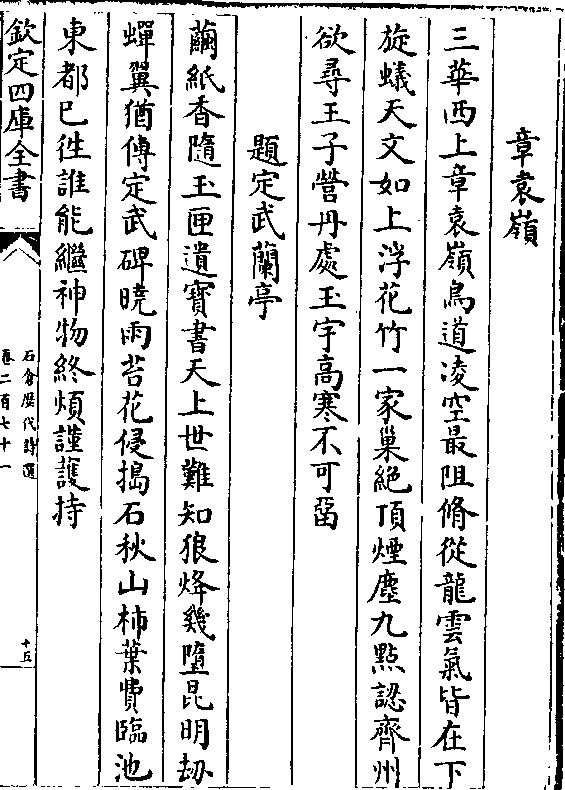 章袁嶺
三華西上章袁嶺鳥道凌空最阻脩從龍雲氣皆在下
旋蟻天文如上浮花竹一家巢絶頂煙塵九點認齊州
欲尋王子營丹處玉宇高寒不可畱
題定武蘭亭
繭紙香隨玉匣遺寳書天上世難知狼烽幾墮昆明刼
蟬翼猶傳定武碑曉雨苔花侵搗石秋山柿葉費臨池
東都已徃誰能繼神物終煩謹護持
欽定四庫全書
石倉歷代詩選
卷二百七十一
十五